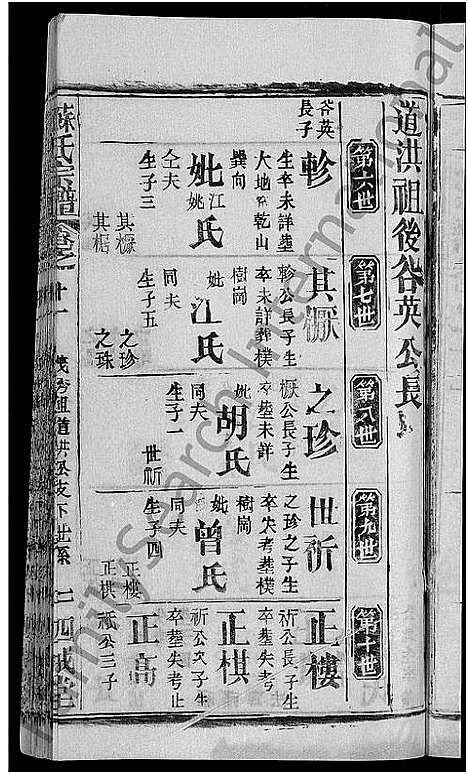 道洪祖後谷英公長
第六世
第七世
第八世
第九世
第十世
谷英
長子
軫
生卒未詳塟
大地 乾山
巽向
妣江氏
仝夫
生子三
其橛
其楉
其橛
軫公長子生
卒未詳葬樸
樹崗
妣江氏
同夫
生子五
之珍
之珠
之珍
橛公長子生
卒塟未詳
妣胡氏
同夫
生子一
世祈
世祈
之珍之子生
卒失考塟樸
樹崗
妣曾氏
同夫
生子四
正樓
正棋
正樓
祈公長子生
卒塟失考
正棋
祈公次子生
卒塟失考止
正高
祇公三子
蘇氏宗譜
卷之十一
祖道洪公支下世系
二 四誠堂
Family Search International